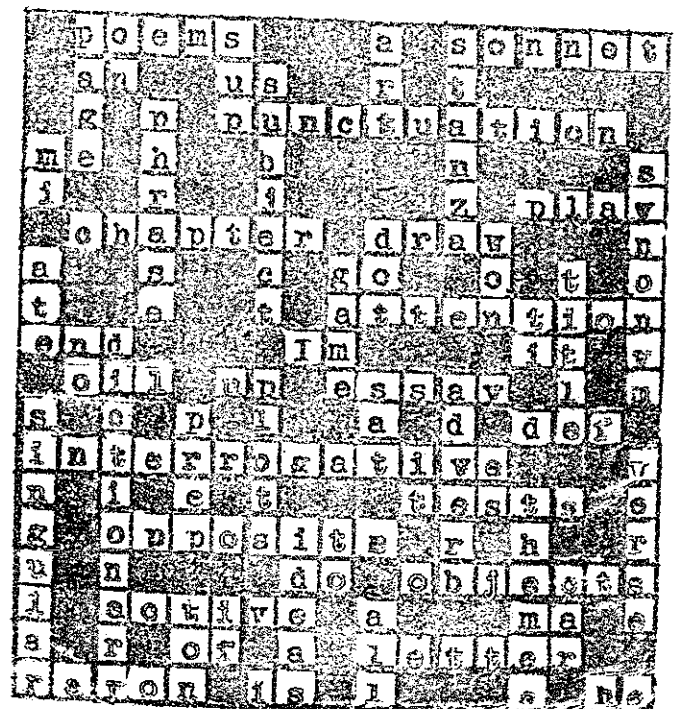 poems a sonnet
an us r t
g p punctuation
me h b n s
i r j z play
chapter draw n
a s e c go o t o
t e t attention
end Im it y
oil up essay l m
s c p l a d def
interrogative v
n i e t tests e
g opposite r h r
u n do objects
l active a ma e
a r of a letter
is l s he